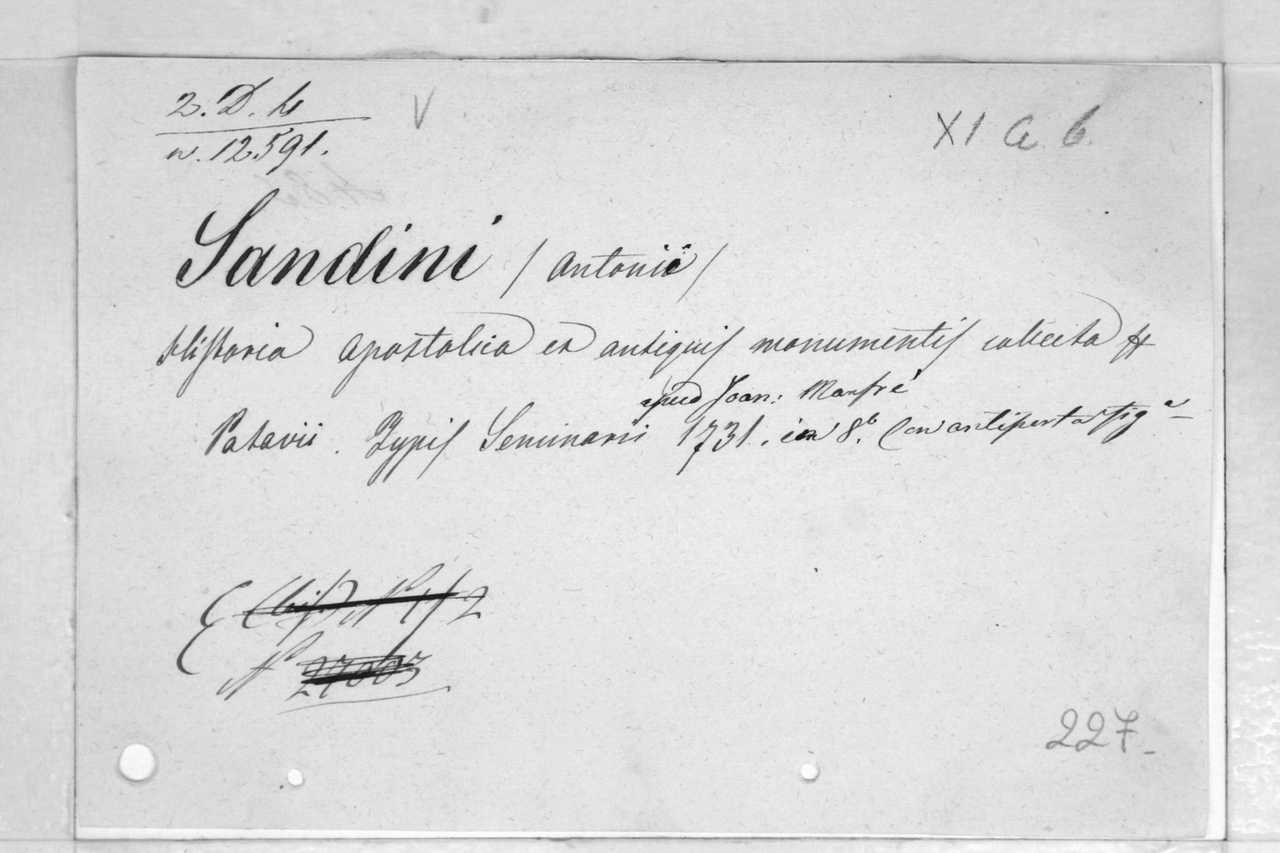 2. D. h
V
XI a 6.
n. 12.591.
Sandini (Antonii)
Historia apostolica ex antiquis monumentis collecta
apud Joan: Manfrè
Patavii. Typis Seminarii 1731. in 8.° Con antiporta fig.ª
N° 27003
227